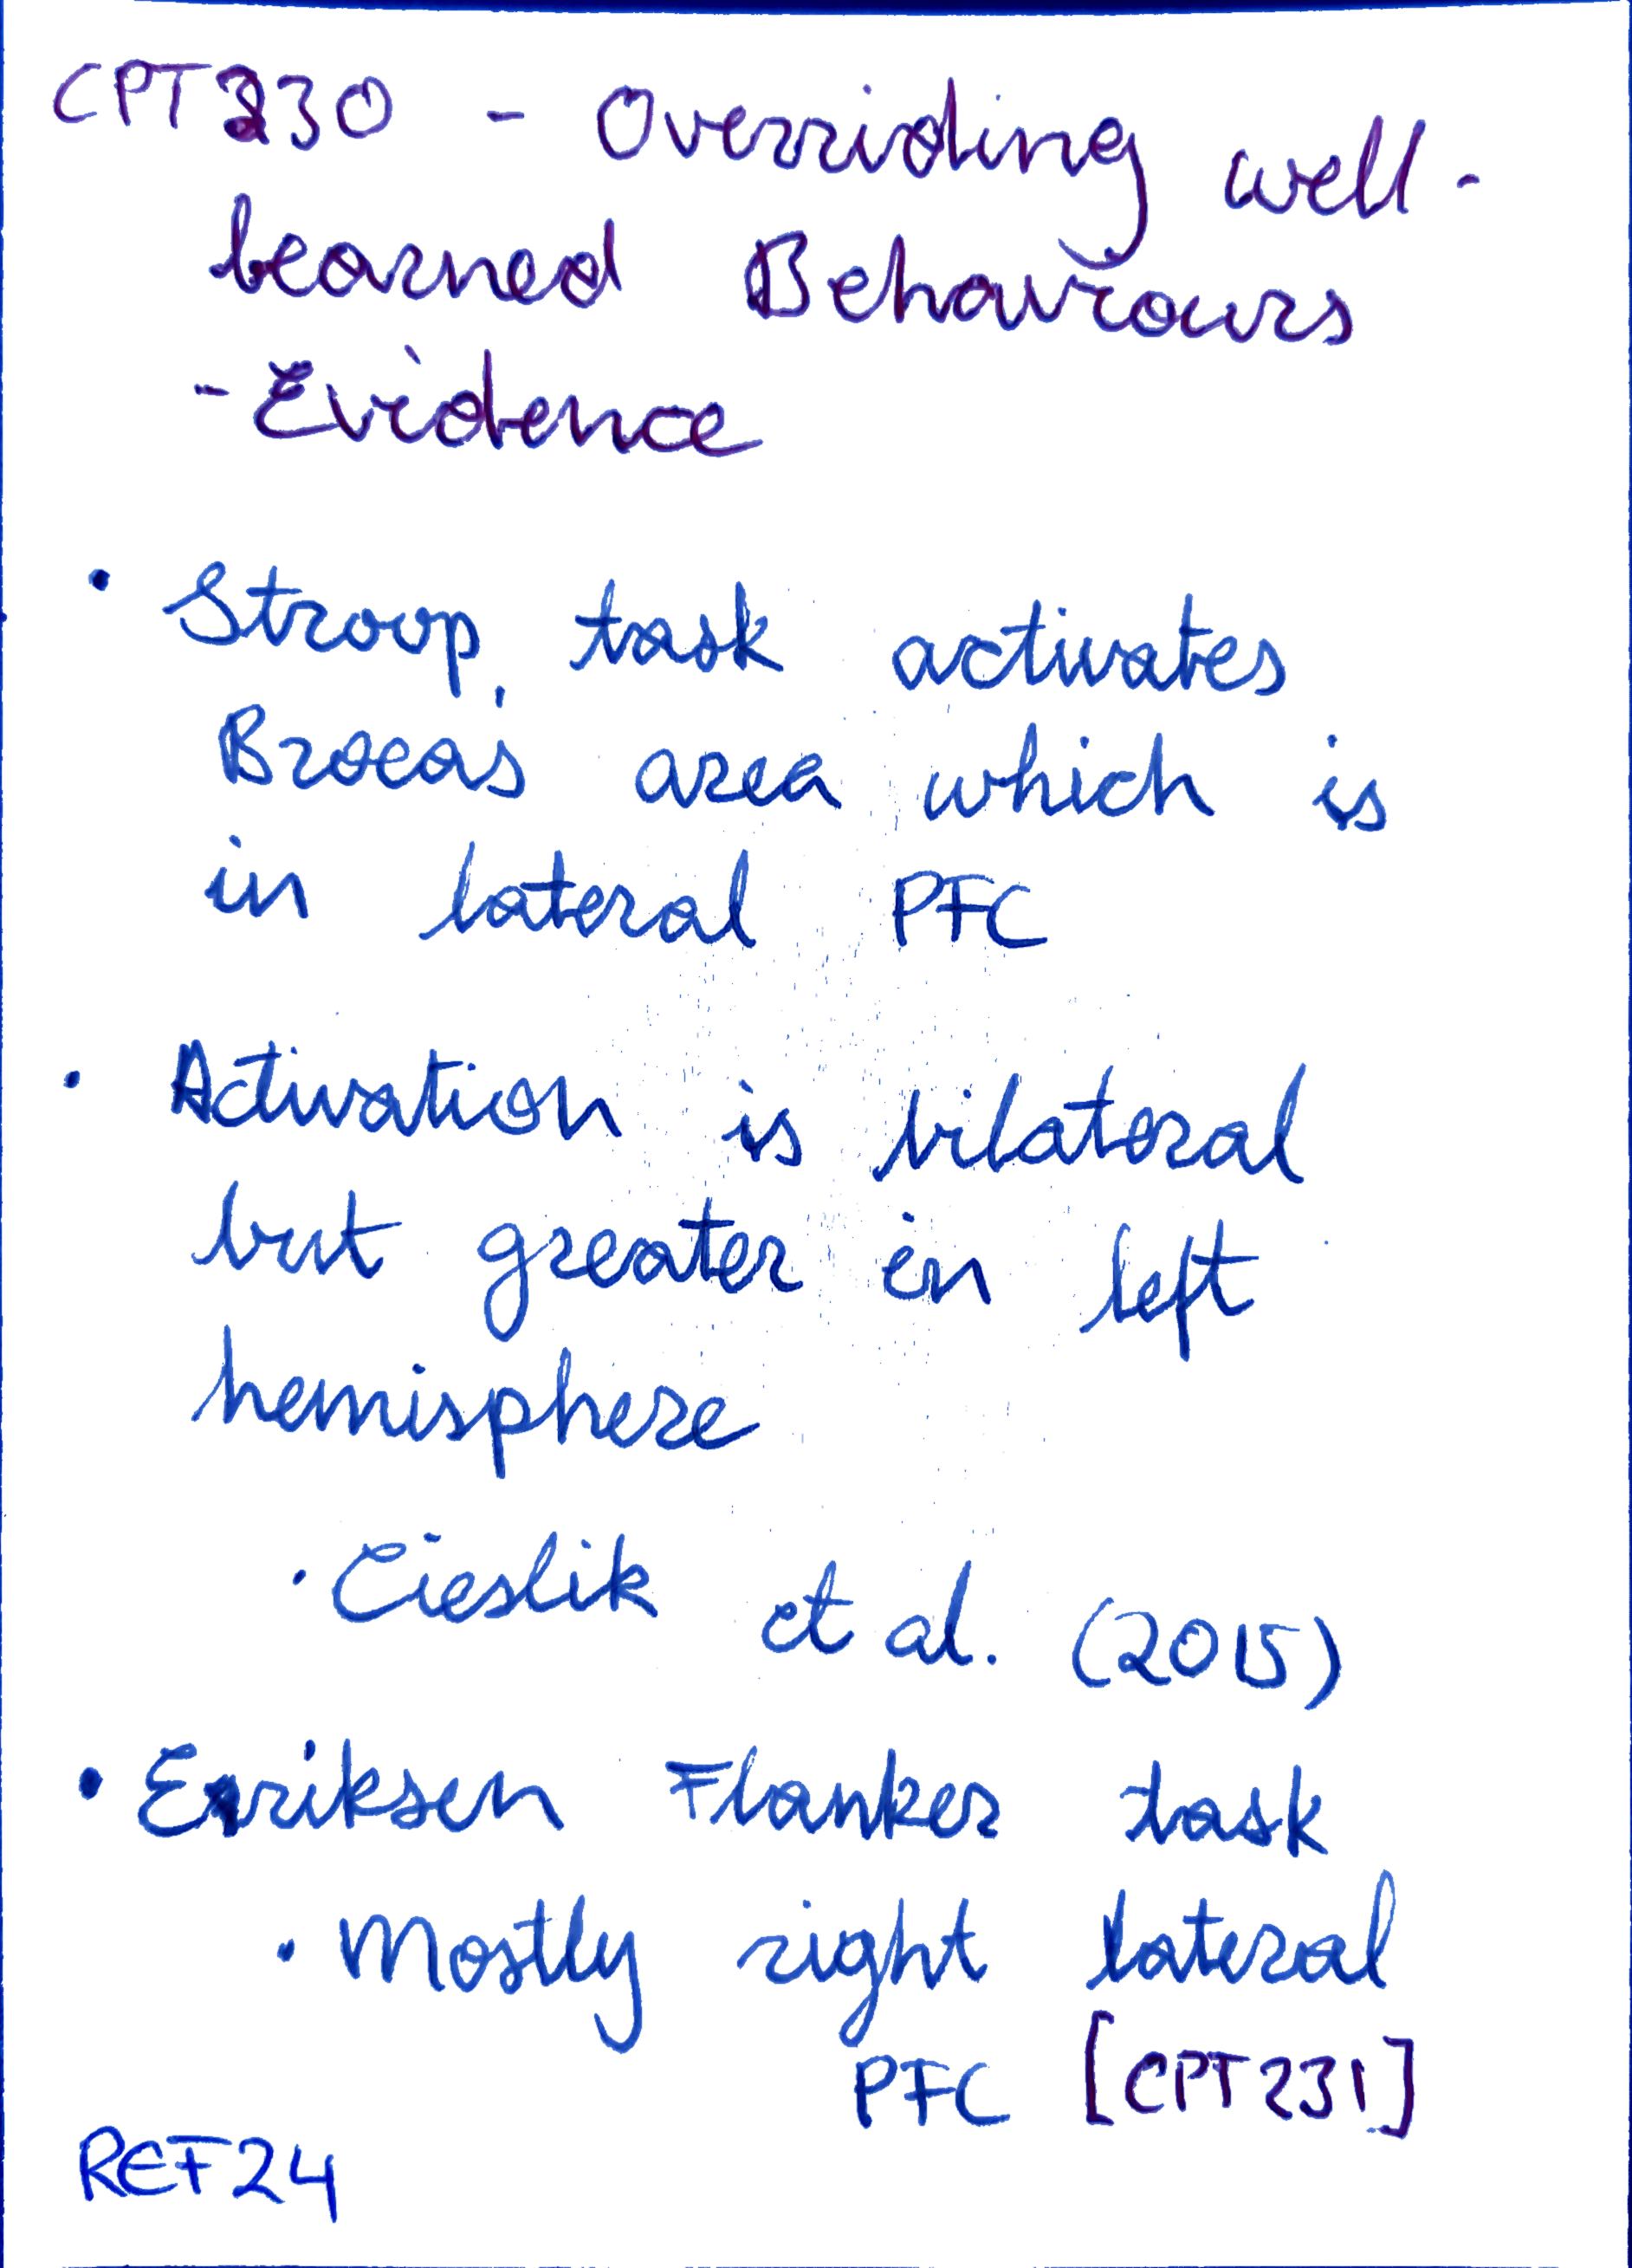 CPT230 - Overriding well-
learned Behaviours
- Evidence
• Stroop task activates
Broca's area which is
in lateral PFC
• Activation is bilateral
but greater in left
hemisphere
• Cieslik et al. (2015)
• Eriksen Flanker task
• Mostly right lateral
PFC [CPT231]
REF24